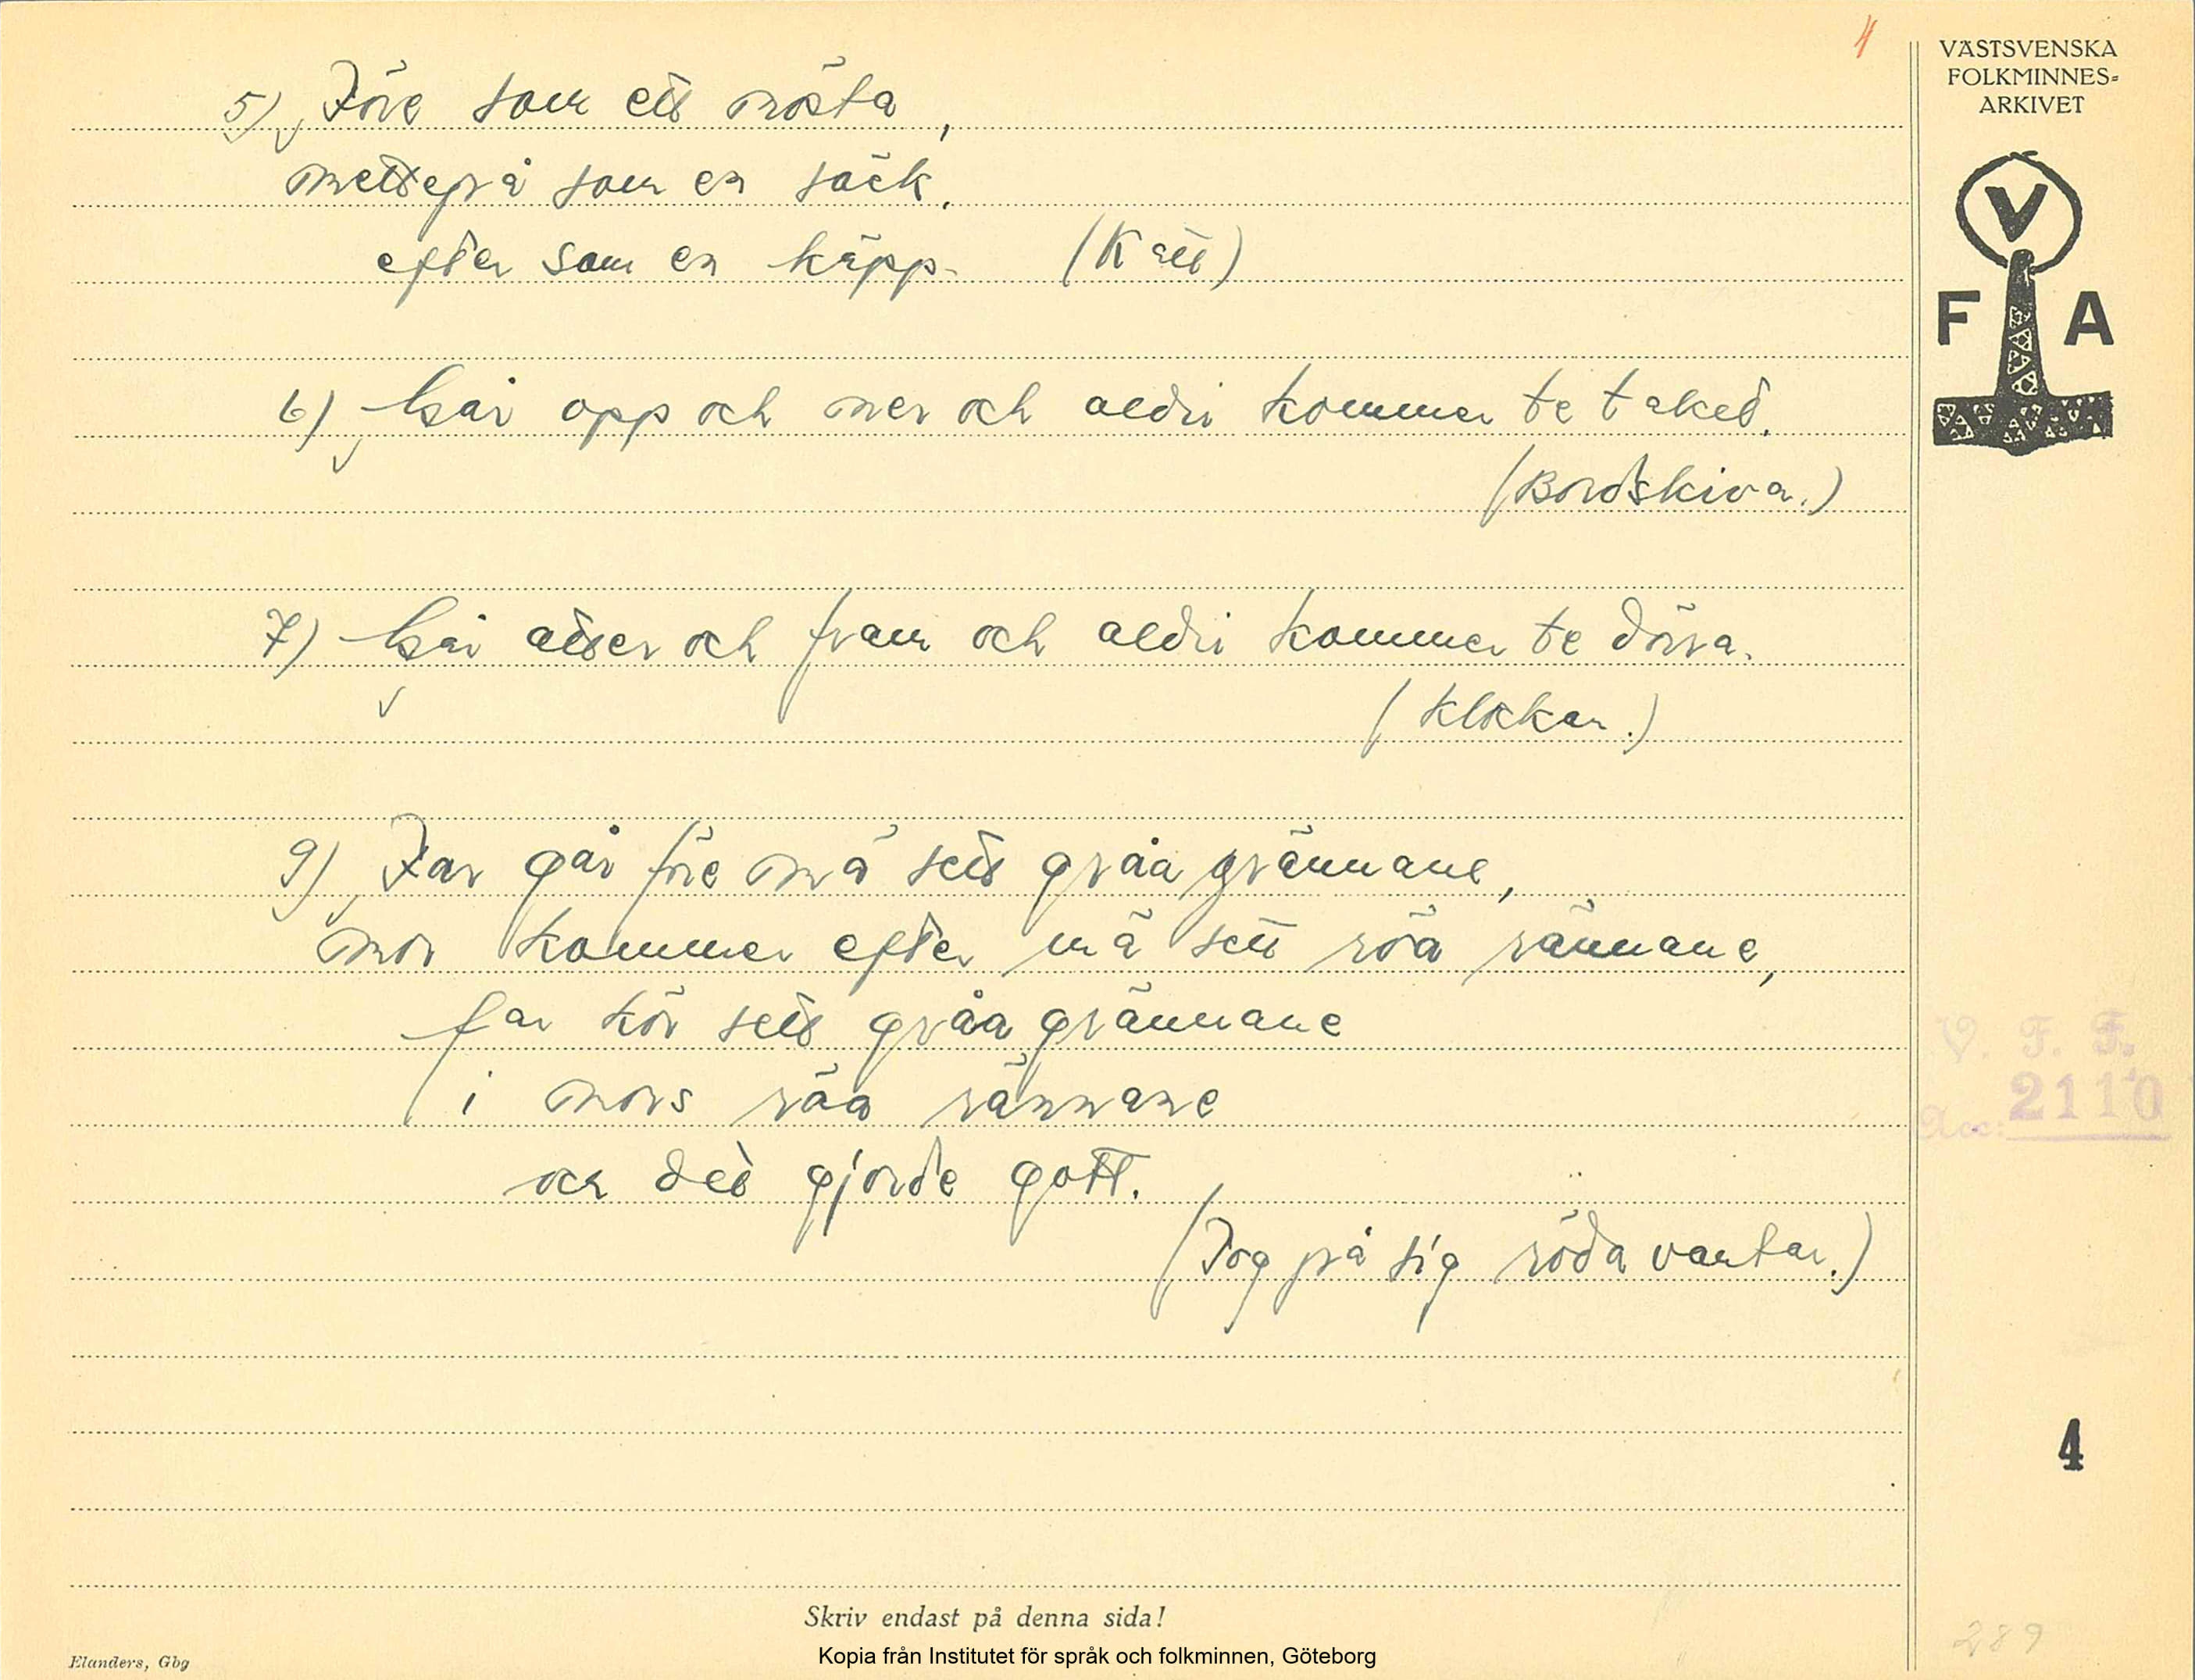 4
VÄSTSVENSKA
FOLKMINNES=
ARKIVET
V
F A
5) Före som ett nösta,
mettepå som en säck,
efter som en käpp. (Katt)
6) Går opp och ner och aldri kommer te taket.
(Bordskiva.)
7) Går atter och fram och aldri kommer te dörra.
(Klockan.)
9) Far går före mä sett gråa grännane,
mor kommer efter mä sett röa rännane,
far kör sett gråa grännane
i mors röa rännane
och det gjorde gott.
(Tog på sig röda vantar.)
V. F. F.
Acc: 2110
4
Skriv endast på denna sida!
Kopia från Institutet för språk och folkminnen, Göteborg
Elanders, Gbg
289